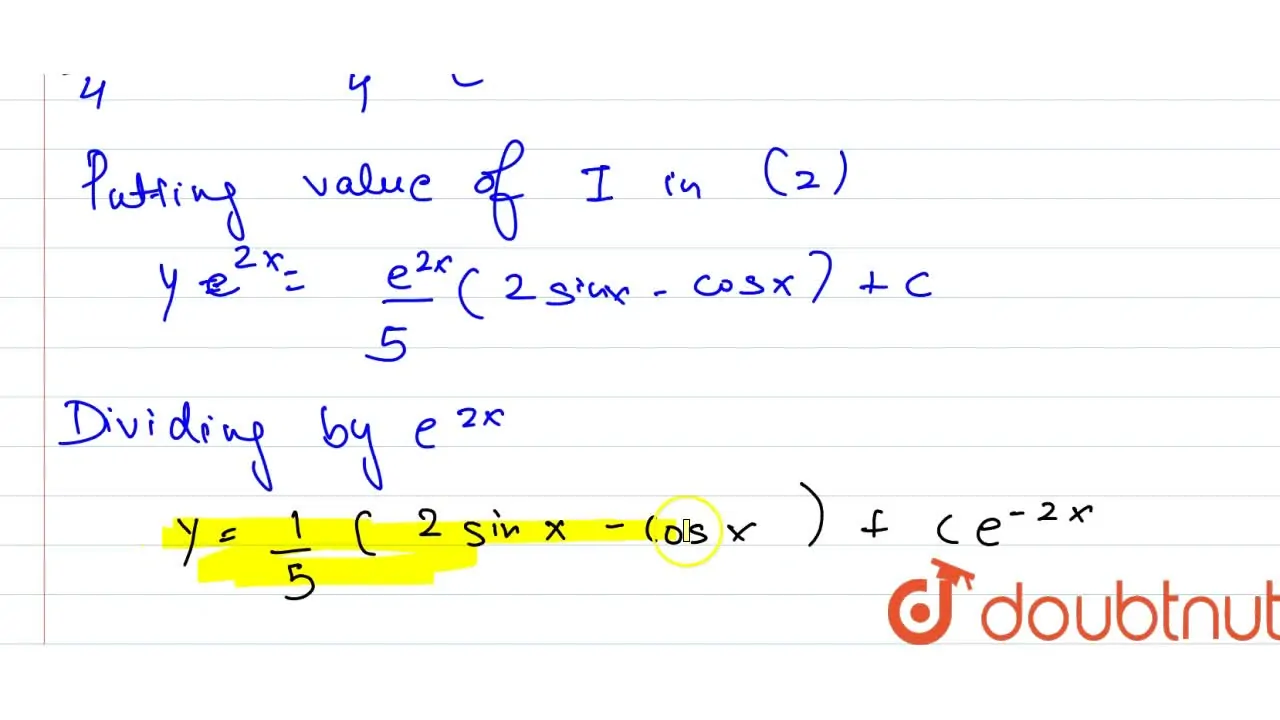 4 4
Putting value of I in (2)
y e^{2x} = \frac{e^{2x}}{5} (2 sinx - cosx) + c
Dividing by e^{2x}
y = \frac{1}{5} (2 sin x - cos x) + c e^{-2x}
doubtnut